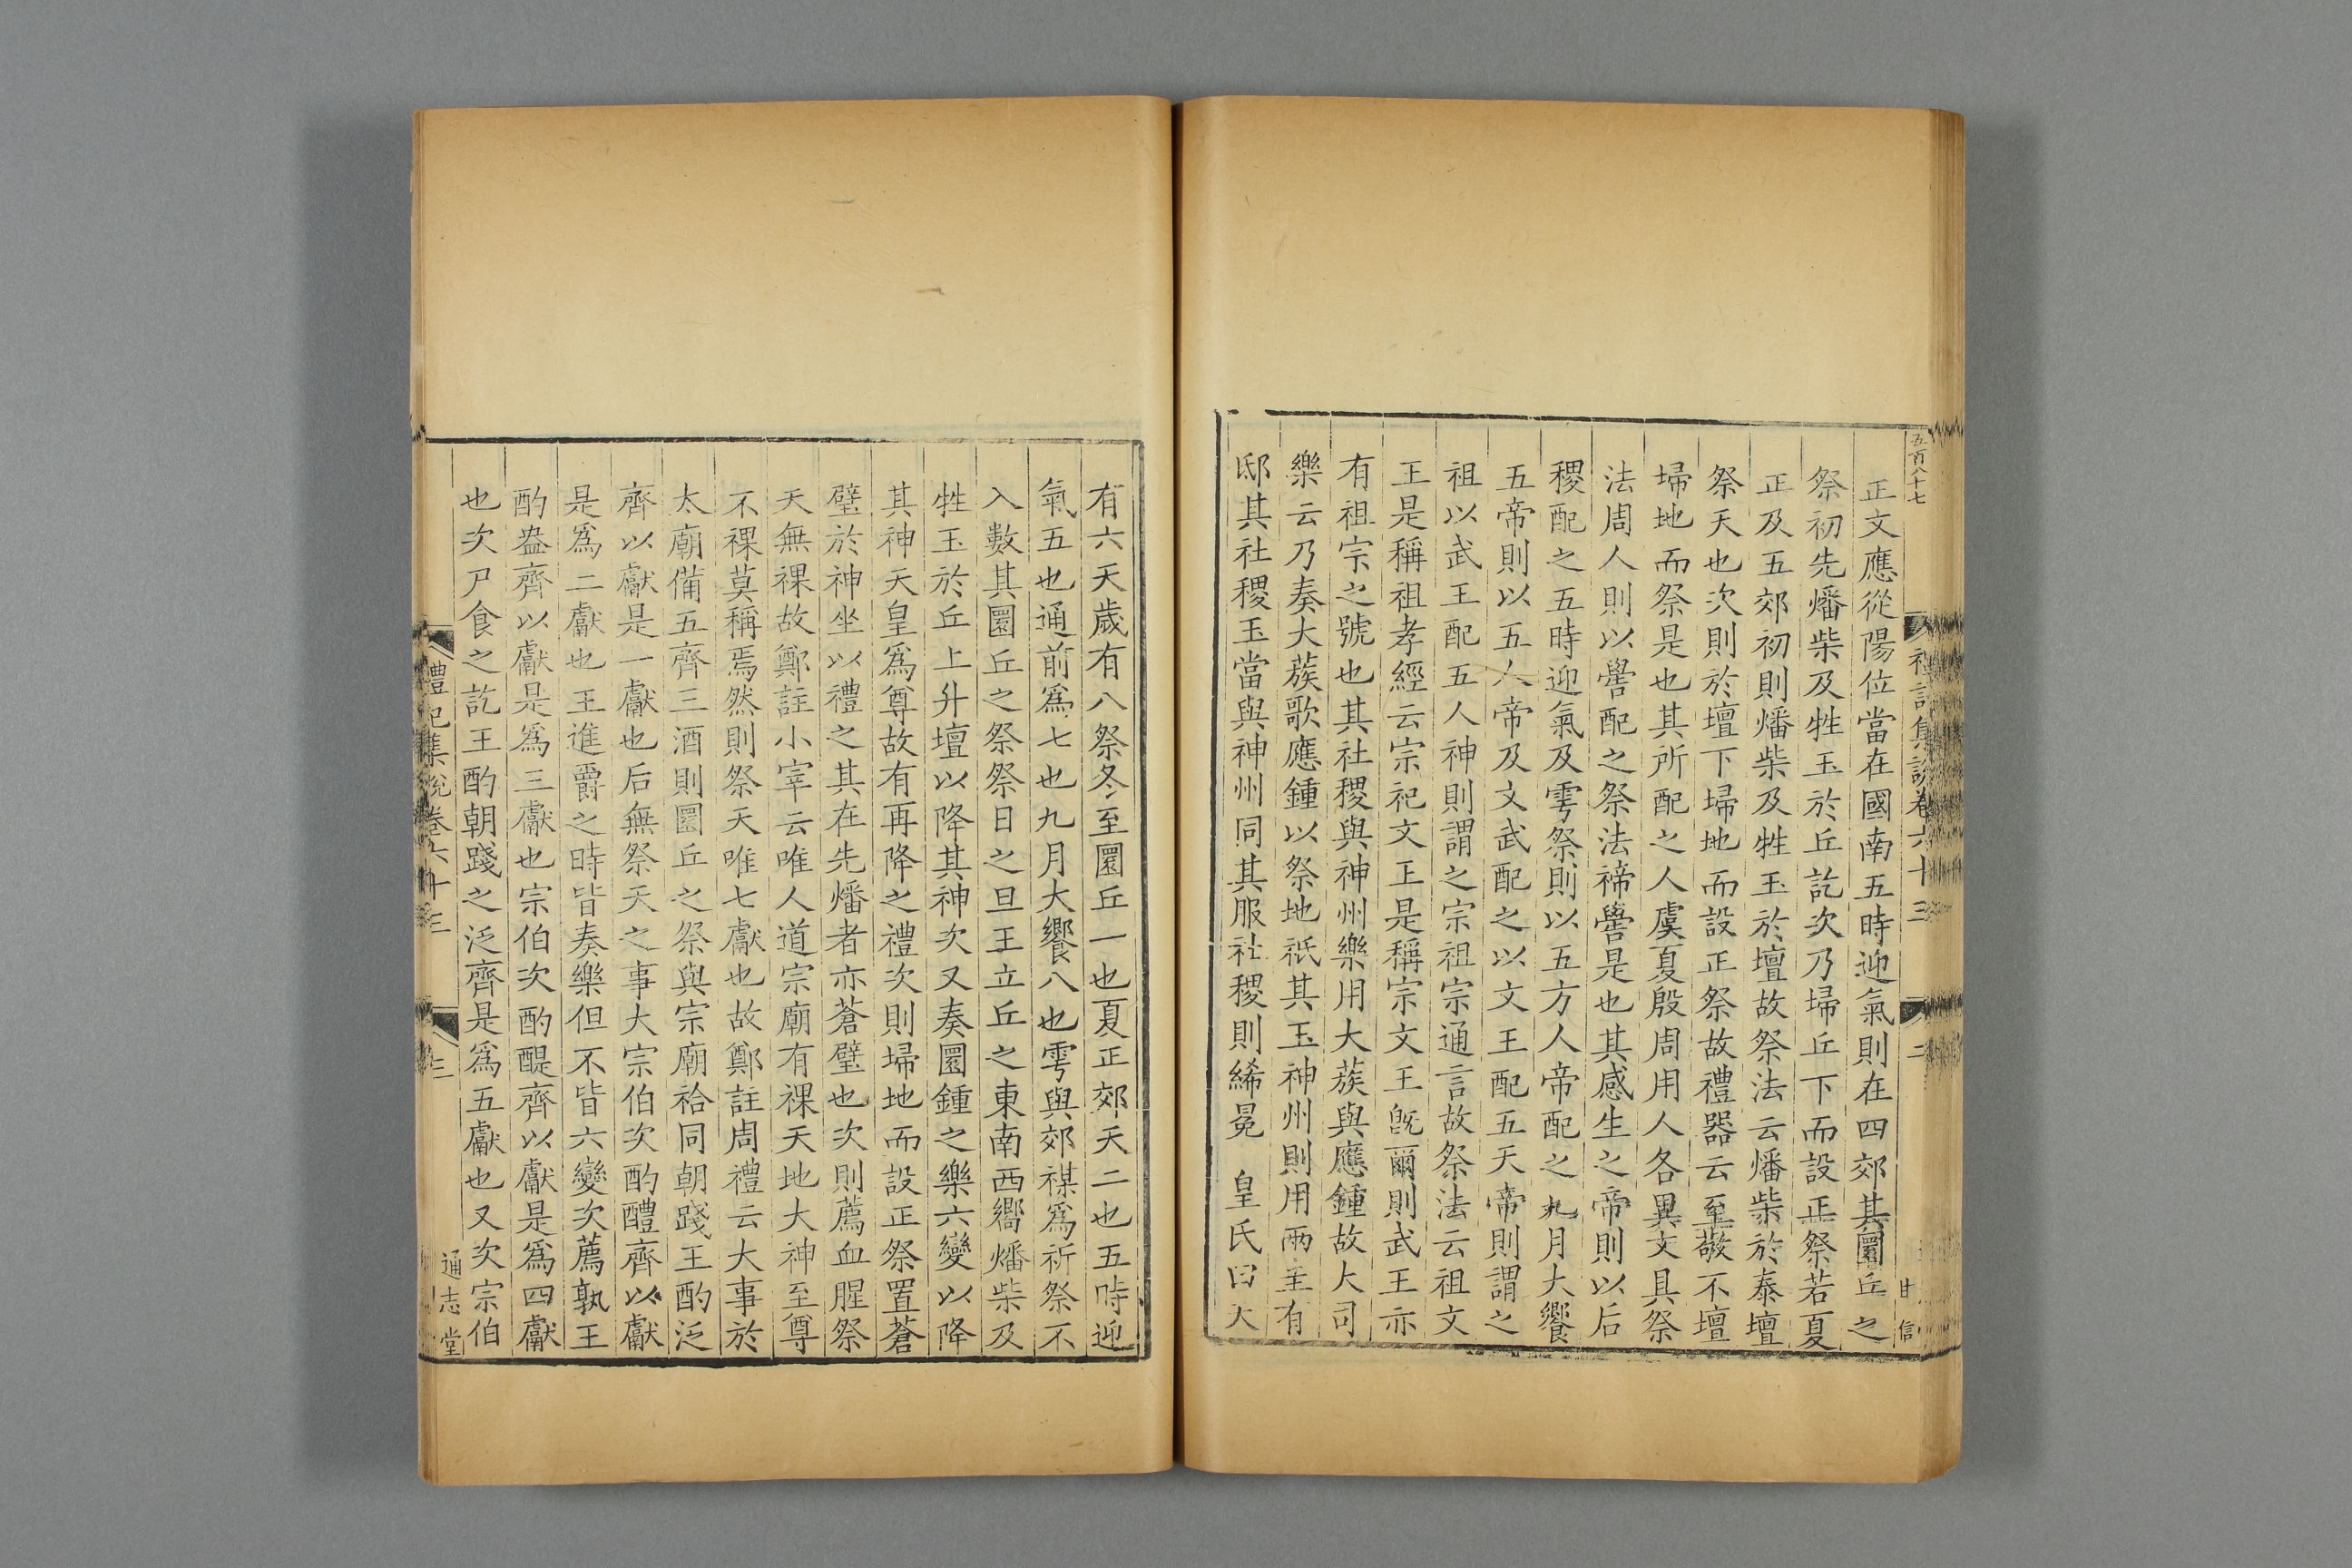 五百八十七
禮記集說卷六十三
二
甘信
正文應從陽位當在國南五時迎氣則在四郊其圜丘之
祭初先燔柴及牲玉於丘訖次乃埽丘下而設正祭若夏
正及五郊初則燔柴及牲玉於壇故祭法云燔柴於泰壇
祭天也次則於壇下埽地而設正祭故禮器云至敬不壇
埽地而祭是也其所配之人虞夏殷周用人各異文具祭
法周人則以嚳配之祭法禘嚳是也其感生之帝則以后
稷配之五時迎氣及雩祭則以五方人帝配之九月大饗
五帝則以五人帝及文武配之以文王配五天帝則謂之
祖以武王配五人神則謂之宗祖宗通言故祭法云祖文
王是稱祖孝經云宗祀文王是稱宗文王旣爾則武王亦
有祖宗之號也其社稷與神州樂用大蔟與應鍾故大司
樂云乃奏大蔟歌應鍾以祭地祇其玉神州則用兩圭有
邸其社稷玉當與神州同其服社稷則絺冕　皇氏曰天
有六天歲有八祭冬至圜丘一也夏正郊天二也五時迎
氣五也通前爲七也九月大饗八也雩與郊禖爲祈祭不
入數其圜丘之祭祭日之旦王立丘之東南西嚮燔柴及
牲玉於丘上升壇以降其神次又奏圜鍾之樂六變以降
其神天皇爲尊故有再降之禮次則埽地而設正祭置蒼
璧於神坐以禮之其在先燔者亦蒼璧也次則薦血腥祭
天無祼故鄭註小宰云唯人道宗廟有祼天地大神至尊
不祼莫稱焉然則祭天唯七獻也故鄭註周禮云大事於
太廟備五齊三酒則圜丘之祭與宗廟祫同朝踐王酌泛
齊以獻是一獻也后無祭天之事大宗伯次酌醴齊以獻
是爲二獻也王進爵之時皆奏樂但不皆六變次薦孰王
酌盎齊以獻是爲三獻也宗伯次酌醍齊以獻是爲四獻
也次尸食之訖王酌朝踐之泛齊是爲五獻也又次宗伯
禮記集說卷六十三
三
通志堂